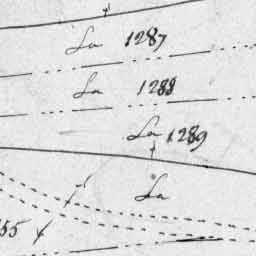 La 1287
La 1288
La 1289
La
55